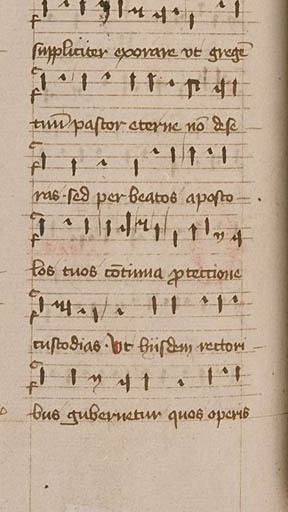 suppliciter exorare vt gregē
tuū pastor eterne nō dese
ras · sed per beatos aposto
los tuos cōtinua ꝓtectione
custodias · Ut hiisdem rectori
bus gubernetur quos operis